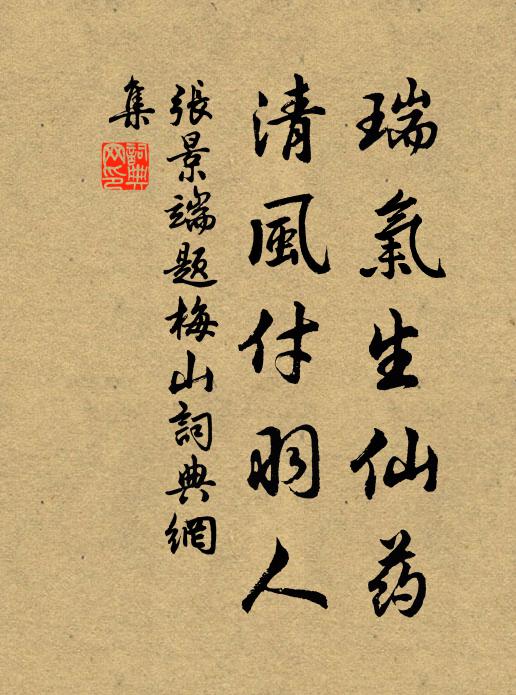 瑞氣生仙药
清風付羽人
張景端題梅山詞典網
集
詞典網印